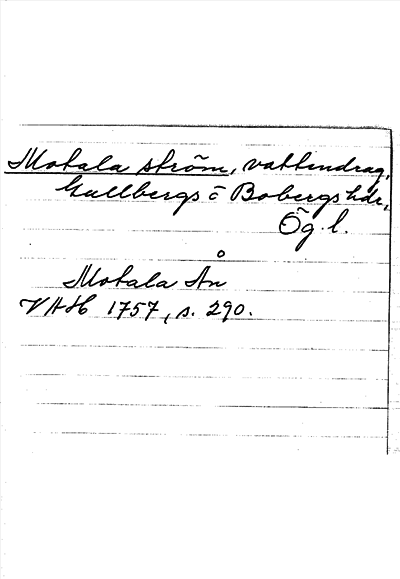 Motala ström, vattendrag,
Gullbergs o Bobergs hdr,
Ög. l.
Motala Ån
VAH 1757, s. 290.